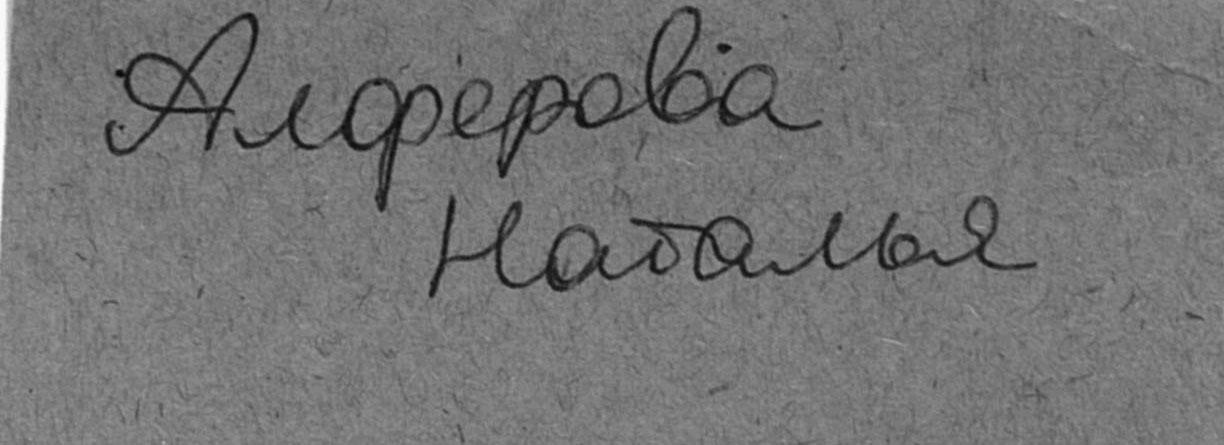 Алферова
Наталья